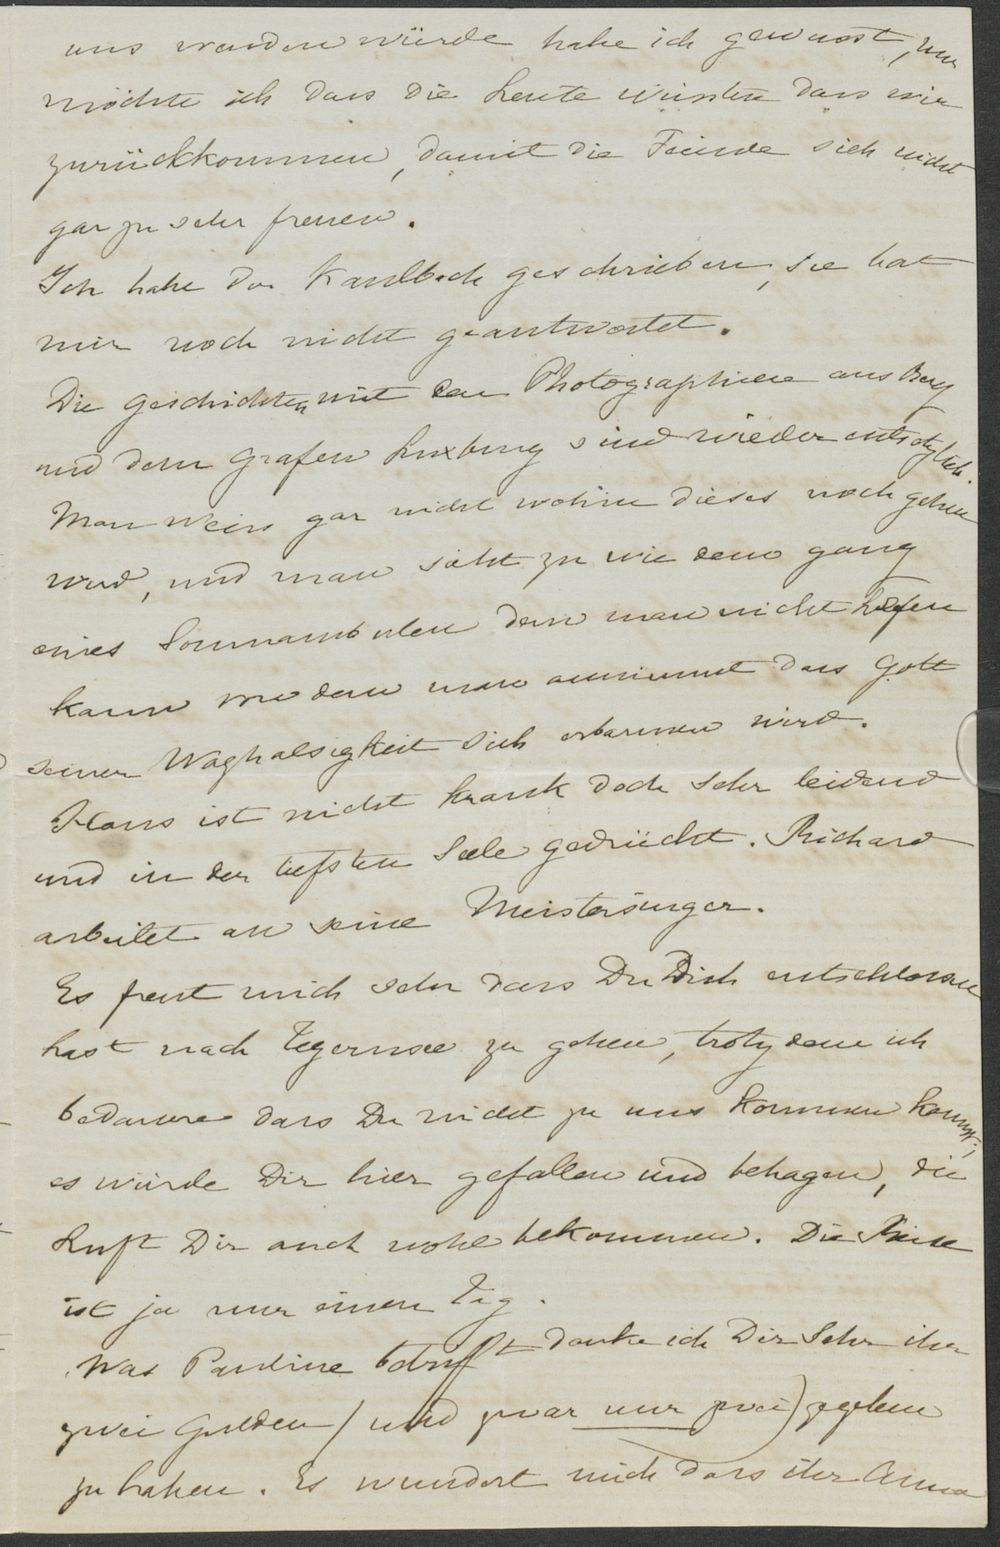 uns werden würde habe ich gewusst, nur
möchte ich dass die Leute wüssten dass wir
zurückkommen, damit die Feinde sich nicht
gar zu sehr freuen.
Ich habe der Kaulbach geschrieben, sie hat
mir noch nicht geantwortet.
Die Geschichten mit den Photographieen aus Berg
und dem Grafen Luxburg sind wieder entsetzlich.
Man weiss gar nicht wohin dieses noch gehen
wird, und man sieht zu wie dem gang
eines Somnambulen dem man nicht helfen
kann von dem man annimmt dass Gott
seiner Waghalsigkeit sich erbarmen wird.
Hans ist nicht krank doch sehr leidend
und in der tiefsten Seele gedrückt. Richard
arbeitet an seine Meistersinger.
Es freut mich sehr dass Du Dich entschlossen
hast nach Tegernsee zu gehen, trotzdem ich
bedauere dass Du nicht zu uns kommen kannst;
es würde Dir hier gefallen und behagen, die
Luft Dir auch wohl bekommen. Die Reise
ist ja nur einen Tag.
Was Pauline betrifft danke ich Dir sehr ihr
zwei Gulden (und zwar nur zwei) gegeben
zu haben. Es wundert mich dass ihr Anna